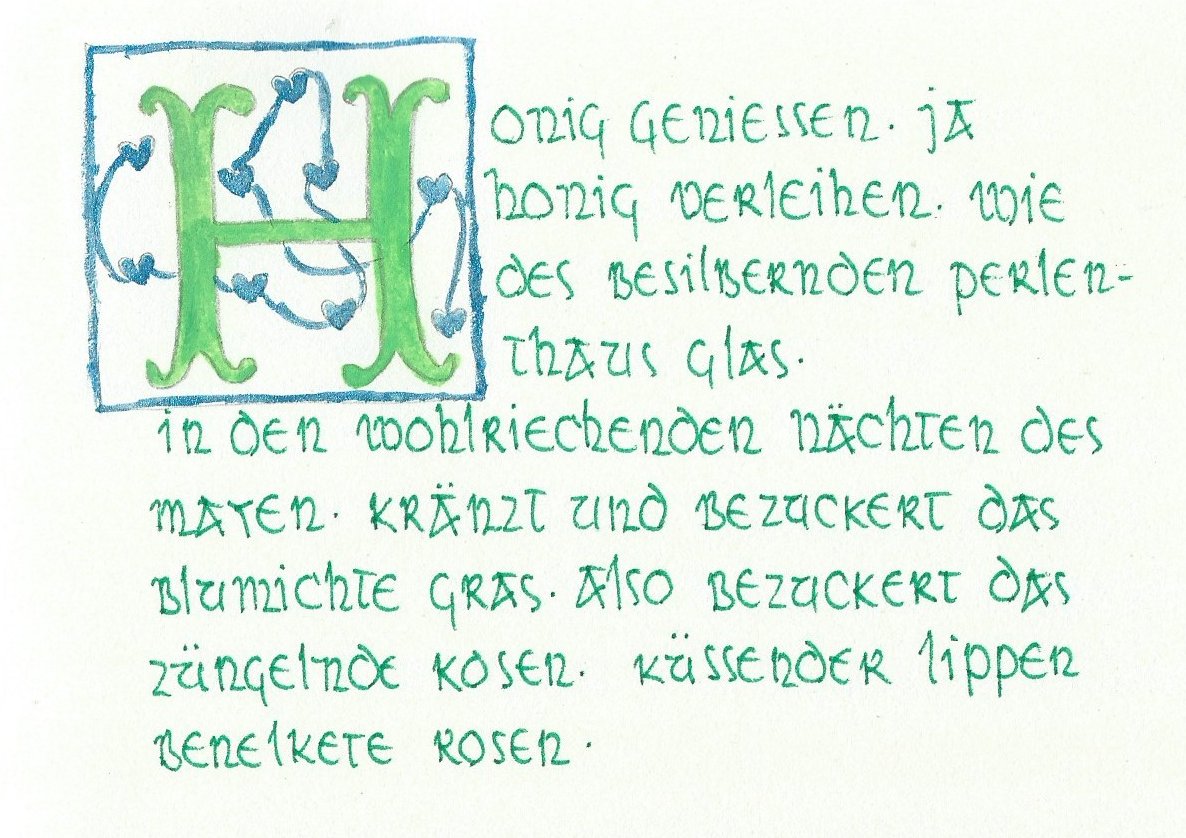 Honig geniessen. ja
honig verleihen. wie
des besilbernden perlen-
thaus glas.
in den wohlriechenden nächten des
mayen. kränzt und bezuckert das
blumichte gras. Also bezuckert das
züngelnde kosen. küssender lippen
benelkete rosen.